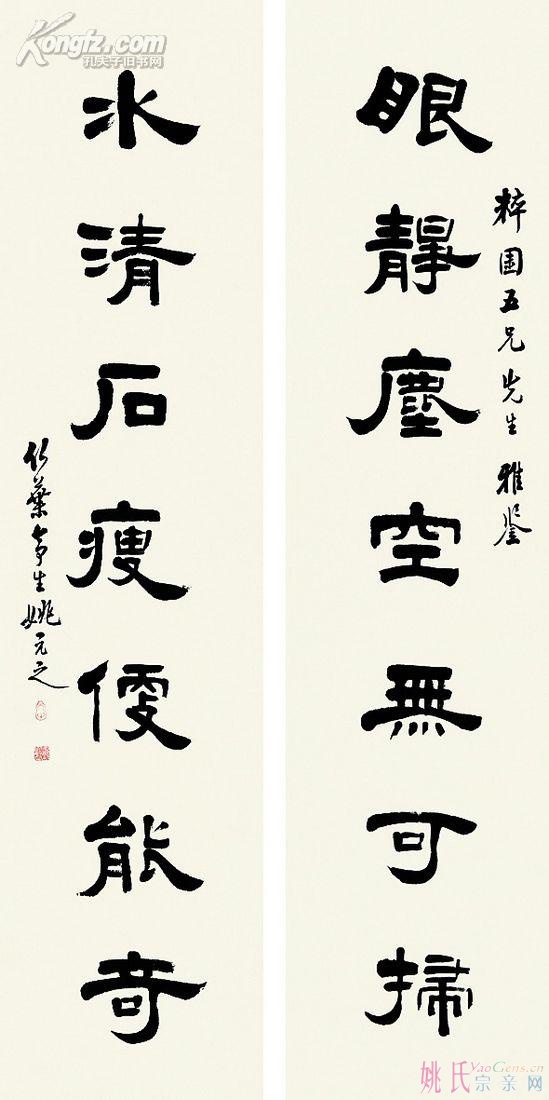 粹園五兄先生雅鉴
眼靜塵空無可掃
水清石瘦便能奇
竹葉亭生姚元之
Kongfz.com
孔夫子旧书网
YaoGens.cn
姚氏宗亲网